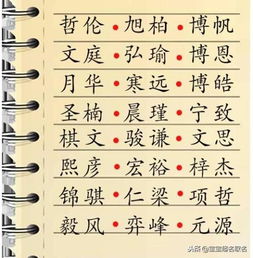 哲伦•旭柏•博帆
文庭•弘瑜•博恩
月华•寒远•博皓
圣楠•晨瑾•宁致
棋文•骏谦•文思
熙彦•宏裕•梓杰
锦骐•仁梁•项哲
毅风•弈峰•元源
头条@宝宝起名取名